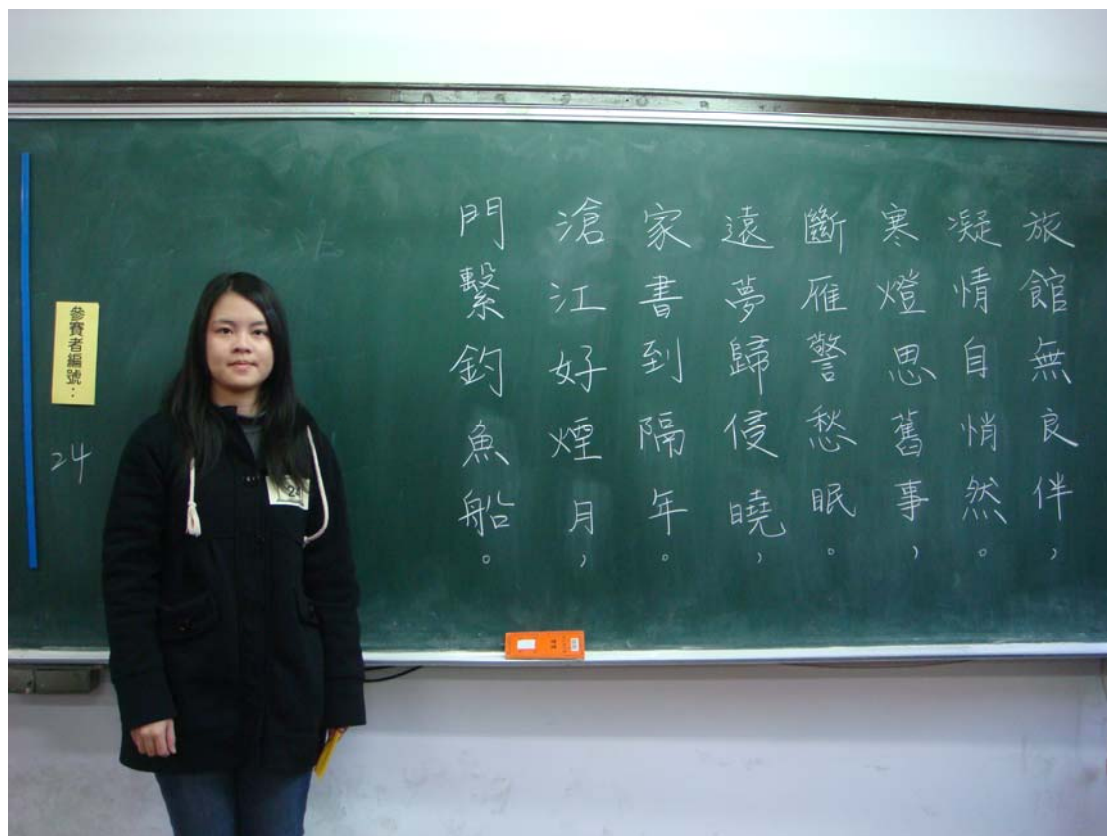 旅館無良伴，
凝情自悄然。
寒燈思舊事，
斷雁警愁眠。
遠夢歸侵曉，
家書到隔年。
滄江好煙月，
門繫釣魚船。
參賽者編號：
24
24